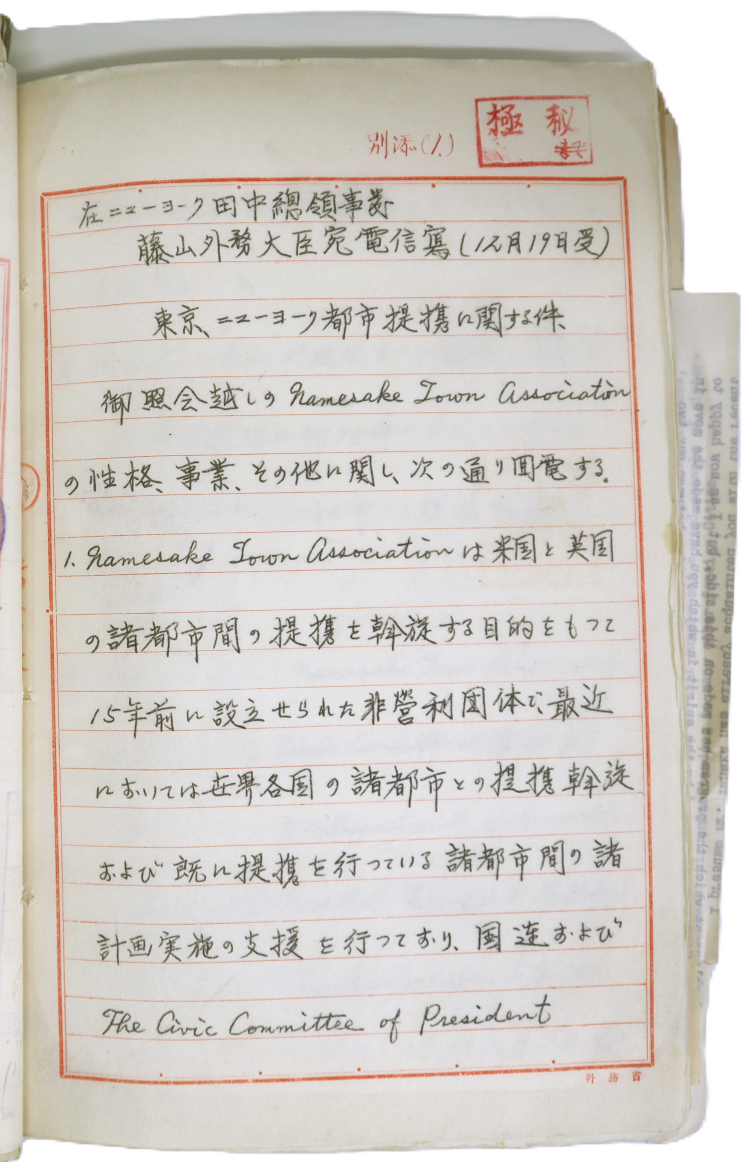 別添(1.)
極秘
在ニューヨーク田中總領事発
藤山外務大臣宛電信寫(12月19日受)
東京、ニューヨーク都市提携に関する件、
御照会越しのNamesake Town Association
の性格、事業、その他に関し、次の通り囬電する。
1. Namesake Town Associationは米国と英国
の諸都市間の提携を斡旋する目的をもつて
15年前に設立せられた非営利団体で、最近
においては世界各国の諸都市との提携斡旋
および既に提携を行つている諸都市間の諸
計画実施の支援を行つており、国連および
The Civic Committee of President
外務省